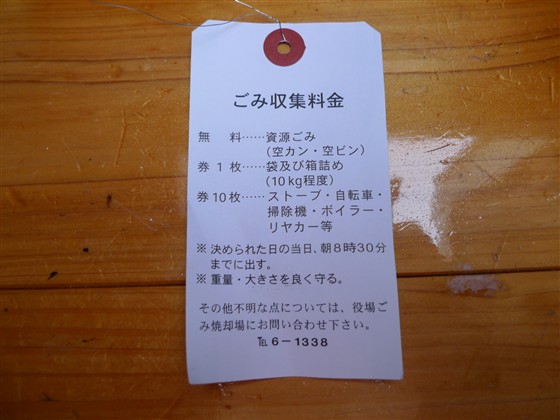 ごみ収集料金
無料……資源ごみ
(空カン・空ビン)
券1枚……袋及び箱詰め
(10kg程度)
券10枚……ストーブ・自転車・
掃除機・ボイラー・
リヤカー等
※ 決められた日の当日、朝8時30分
までに出す。
※ 重量・大きさを良く守る。
その他不明な点については、役場ご
み焼却場にお問い合わせ下さい。
℡ 6-1338